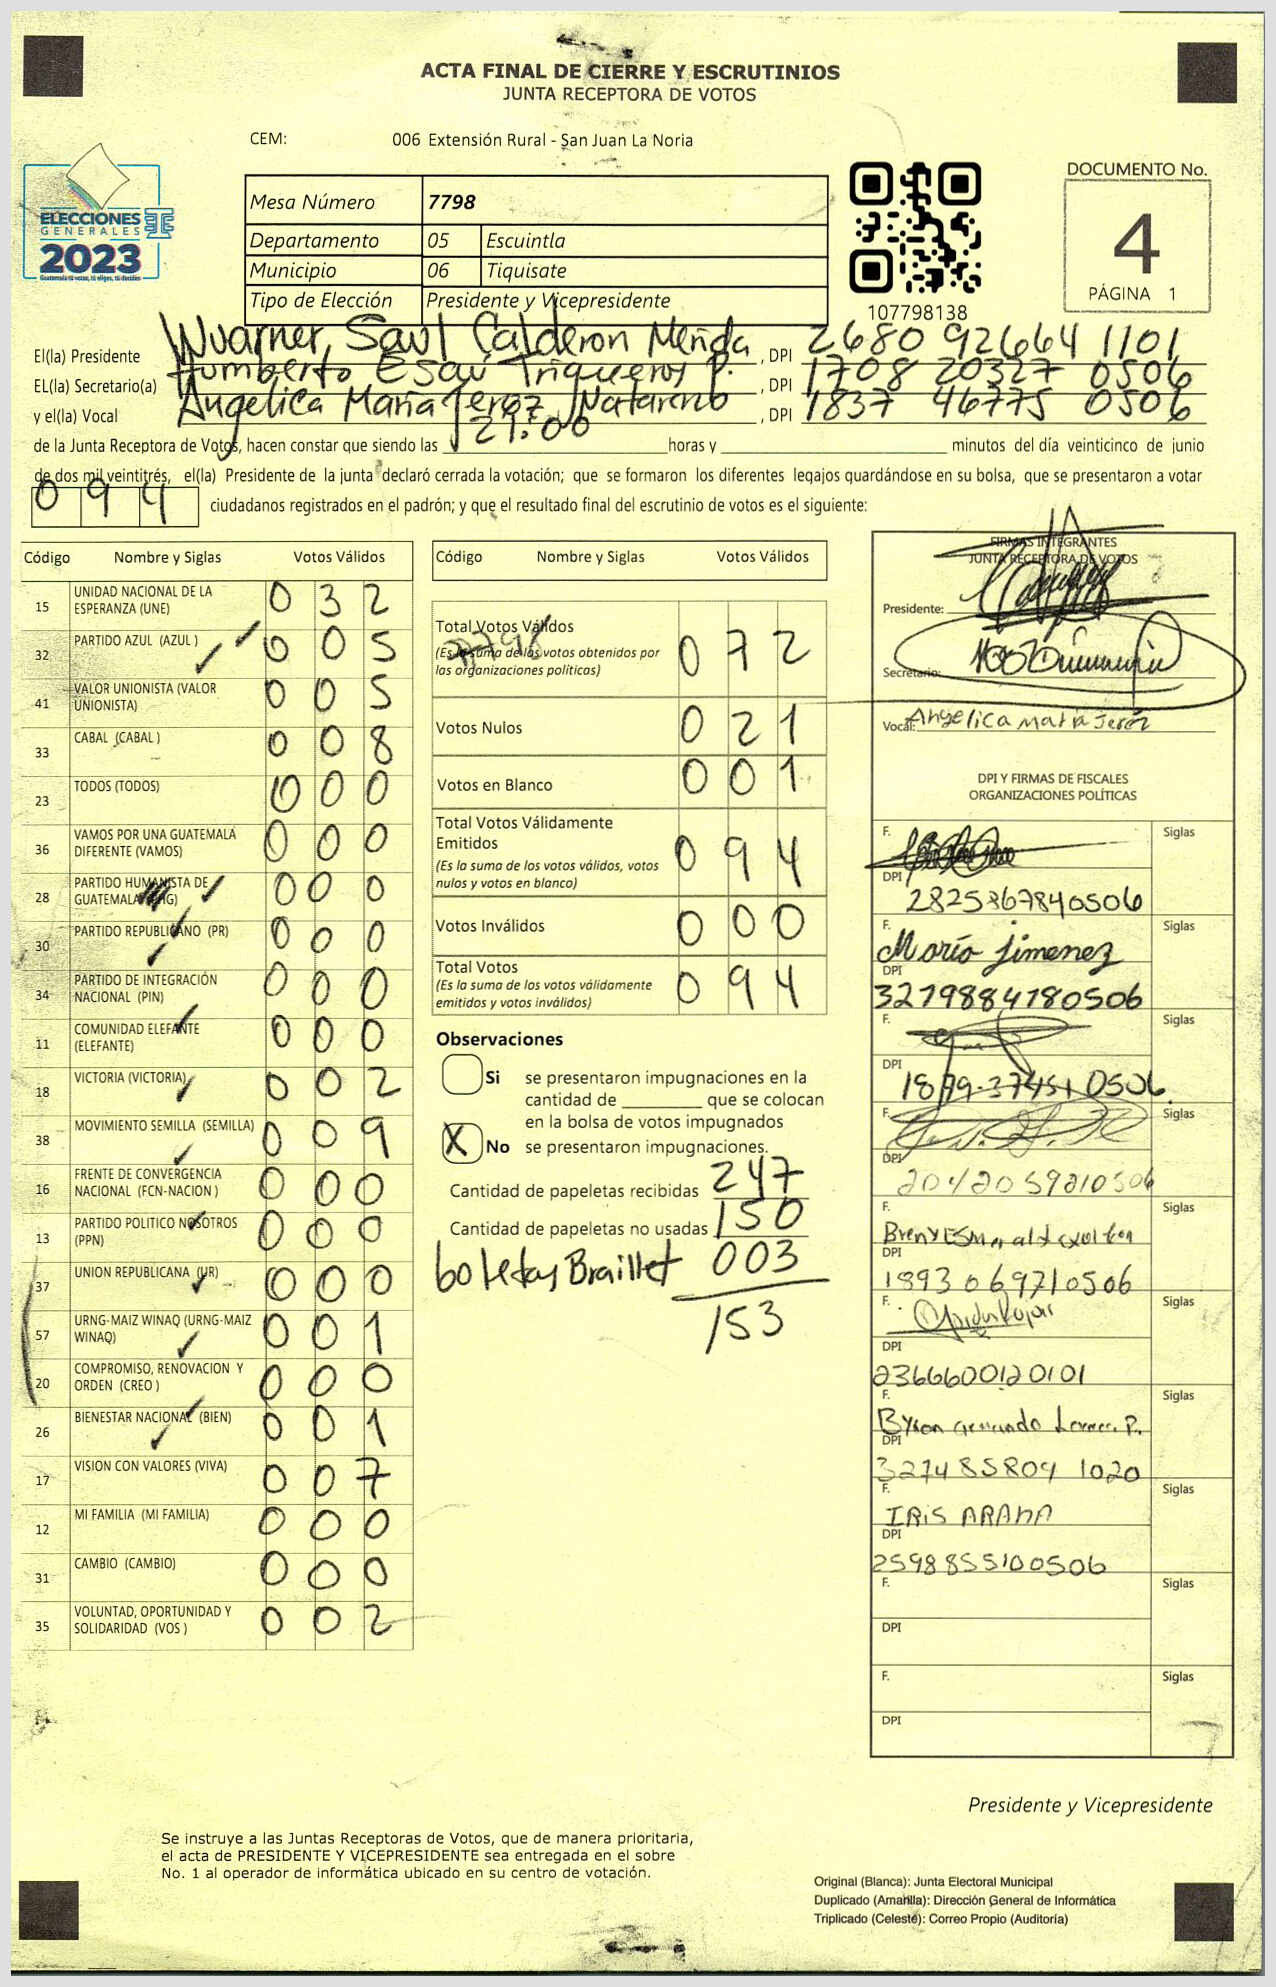 ACTA FINAL DE CIERRE Y ESCRUTINIOS
JUNTA RECEPTORA DE VOTOS
CEM: 006 Extensión Rural - San Juan La Noria
ELECCIONES
GENERALES
2023
Mesa Número 7798
Departamento 05 Escuintla
Municipio 06 Tiquisate
Tipo de Elección Presidente y Vicepresidente
107798138
DOCUMENTO No.
4
PÁGINA 1
El(la) Presidente Wuarner Saul Calderon Merida, DPI 2680 92664 1101
EL(la) Secretario(a) Humberto Esaú Triqueros P., DPI 1708 20327 0506
y el(la) Vocal Angelica Maria Jeroz Natareno, DPI 1837 46775 0506
de la Junta Receptora de Votos, hacen constar que siendo las 21:00 horas y minutos del día veinticinco de junio
de dos mil veintitrés, el(la) Presidente de la junta declaró cerrada la votación; que se formaron los diferentes legajos guardándose en su bolsa, que se presentaron a votar
094 ciudadanos registrados en el padrón; y que el resultado final del escrutinio de votos es el siguiente:
Código Nombre y Siglas Votos Válidos
15 UNIDAD NACIONAL DE LA ESPERANZA (UNE) 032
32 PARTIDO AZUL (AZUL ) 005
41 VALOR UNIONISTA (VALOR UNIONISTA) 005
33 CABAL (CABAL ) 008
23 TODOS (TODOS) 000
36 VAMOS POR UNA GUATEMALA DIFERENTE (VAMOS) 000
28 PARTIDO HUMANISTA DE GUATEMALA 000
30 PARTIDO REPUBLICANO (PR) 000
34 PARTIDO DE INTEGRACIÓN NACIONAL (PIN) 000
11 COMUNIDAD ELEFANTE (ELEFANTE) 000
18 VICTORIA (VICTORIA) 002
38 MOVIMIENTO SEMILLA (SEMILLA) 009
16 FRENTE DE CONVERGENCIA NACIONAL (FCN-NACION ) 000
13 PARTIDO POLITICO NOSOTROS (PPN) 000
37 UNION REPUBLICANA (UR) 000
57 URNG-MAIZ WINAQ (URNG-MAIZ WINAQ) 001
20 COMPROMISO, RENOVACION Y ORDEN (CREO ) 000
26 BIENESTAR NACIONAL (BIEN) 001
17 VISION CON VALORES (VIVA) 007
12 MI FAMILIA (MI FAMILIA) 000
31 CAMBIO (CAMBIO) 000
35 VOLUNTAD, OPORTUNIDAD Y SOLIDARIDAD (VOS ) 002
Código Nombre y Siglas Votos Válidos
Total Votos Válidos 072
7798
(Es la suma de los votos obtenidos por las organizaciones políticas)
Votos Nulos 021
Votos en Blanco 001
Total Votos Válidamente Emitidos 094
(Es la suma de los votos válidos, votos nulos y votos en blanco)
Votos Inválidos 000
Total Votos 094
(Es la suma de los votos válidamente emitidos y votos inválidos)
Observaciones
Si se presentaron impugnaciones en la
cantidad de que se colocan
en la bolsa de votos impugnados
X No se presentaron impugnaciones.
Cantidad de papeletas recibidas 247
Cantidad de papeletas no usadas 150
boletas Braillet 003
153
FIRMAS INTEGRANTES
JUNTA RECEPTORA DE VOTOS
Presidente:
Secretario:
Vocal: Angelica Maria Jeréz
DPI Y FIRMAS DE FISCALES
ORGANIZACIONES POLÍTICAS
F. Siglas
DPI 2825867840506
F. María Jimenez Siglas
DPI 3279884780506
F. Siglas
DPI 1879-37451 0506
F. Siglas
DPI 2042059210506
F. Siglas
DPI 1893069710506
F. Siglas
DPI 2366600120101
F. Byron Siglas
DPI 3274 85804 1020
F. IRIS ARANA Siglas
DPI 2598855100506
F. Siglas
DPI
F. Siglas
DPI
Presidente y Vicepresidente
Se instruye a las Juntas Receptoras de Votos, que de manera prioritaria,
el acta de PRESIDENTE Y VICEPRESIDENTE sea entregada en el sobre
No. 1 al operador de informática ubicado en su centro de votación.
Original (Blanca): Junta Electoral Municipal
Duplicado (Amarilla): Dirección General de Informática
Triplicado (Celeste): Correo Propio (Auditoría)